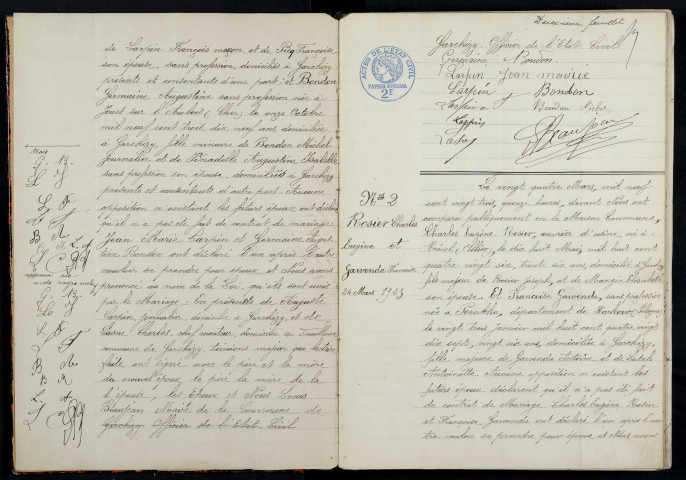 de Carpin François maçon et de Picq Françoise
son épouse, sans profession, domiciliés à Garchizy
présents et consentants d'une part: et Bondon
Germaine Augustine sans profession née à
Jouet sur l'Aubois (Cher) le onze Octobre
mil neuf cent trois, dix neuf ans domiciliée
à Garchizy, fille mineure de Bondon Michel
Journalier et de Augustine
sans profession son épouse, domiciliés à Garchizy
présents et consentants d'autre part. Aucune
opposition n'existant les futurs époux ont déclaré
qu'il n'a pas été fait de contrat de mariage.
Jean Marie Carpin et Germaine Augus-
tine Bondon ont déclaré l'un après l'autre
vouloir se prendre pour époux et Nous avons
prononcé au nom de la Loi, qu'ils sont unis
par le Mariage. En présence de Auguste
Carpin journalier domicilié à Garchizy et de
Charles, chef monteur, domicilié à
commune de Garchizy, témoins majeurs qui lecture
faite ont signé avec le père et la mère
du nouvel époux, le père la mère de la
l'épouse, les Epoux et Nous Louis
Beaujean Maire de la Commune de
Garchizy Officier de l'Etat Civil
Deuxième feuillet
Garchizy. Officier de l'Etat Civil
Germaine Bondon.
Carpin Jean marie
Carpin Bondon
Bondon Michel
ACTES DE L'ETAT CIVIL
PAPIER SPECIAL
2F
Beaujean
N° 2
Rosier Charles
Eugène et
Gawenda Francisca
24 Mars 1923
Le vingt quatre Mars, mil neuf
cent vingt trois, quinze heures, devant Nous ont
comparu publiquement en la Maison Commune,
Charles Eugène Rosier, ouvrier d'usine, né à
Trévol, Allier, le dix huit Mai, mil huit cent
quatre vingt six, trente six ans, domicilié à Garchizy
fils majeur de Rosier Joseph, et de Mangin Elisabeth
son épouse. Et Francisca Gawenda, sans profession
née à département de Pologne,
le vingt trois Janvier mil huit cent quatre vingt
dix sept, vingt six ans, domiciliée à Garchizy,
fille majeure de Gawenda Antoine et de
Antoinette. Aucune opposition n'existant les
futurs époux déclarent qu'il n'a pas été fait
de contrat de Mariage. Charles Eugène Rosier
et Françoise Gawenda ont déclaré l'un après l'au-
tre vouloir se prendre pour époux et Nous avons